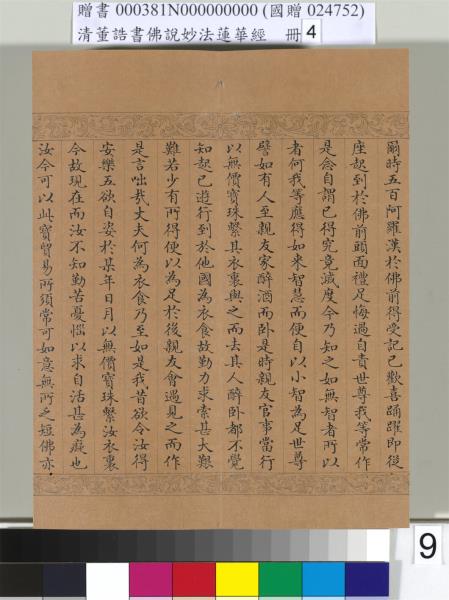 贈書 000381N000000000 (國贈 024752)
清董誥書佛說妙法蓮華經 冊 4
爾時五百阿羅漢於佛前得受記已歡喜踊躍即從
座起到於佛前頭面禮足悔過自責世尊我等常作
是念自謂已得究竟滅度今乃知之如無智者所以
者何我等應得如来智慧而便自以小智為足世尊
譬如有人至親友家醉酒而卧是時親友官事當行
以無價寶珠繫其衣裏與之而去其人醉卧都不覺
知起已遊行到於他國為衣食故勤力求索甚大艱
難若少有所得便以為足於後親友會遇見之而作
是言咄哉丈夫何為衣食乃至如是我昔欲令汝得
安樂五欲自恣於某年日月以無價寶珠繫汝衣裏
今故現在而汝不知勤苦憂惱以求自活甚為癡也
汝今可以此寶貿易所須常可如意無所乏短佛亦
9